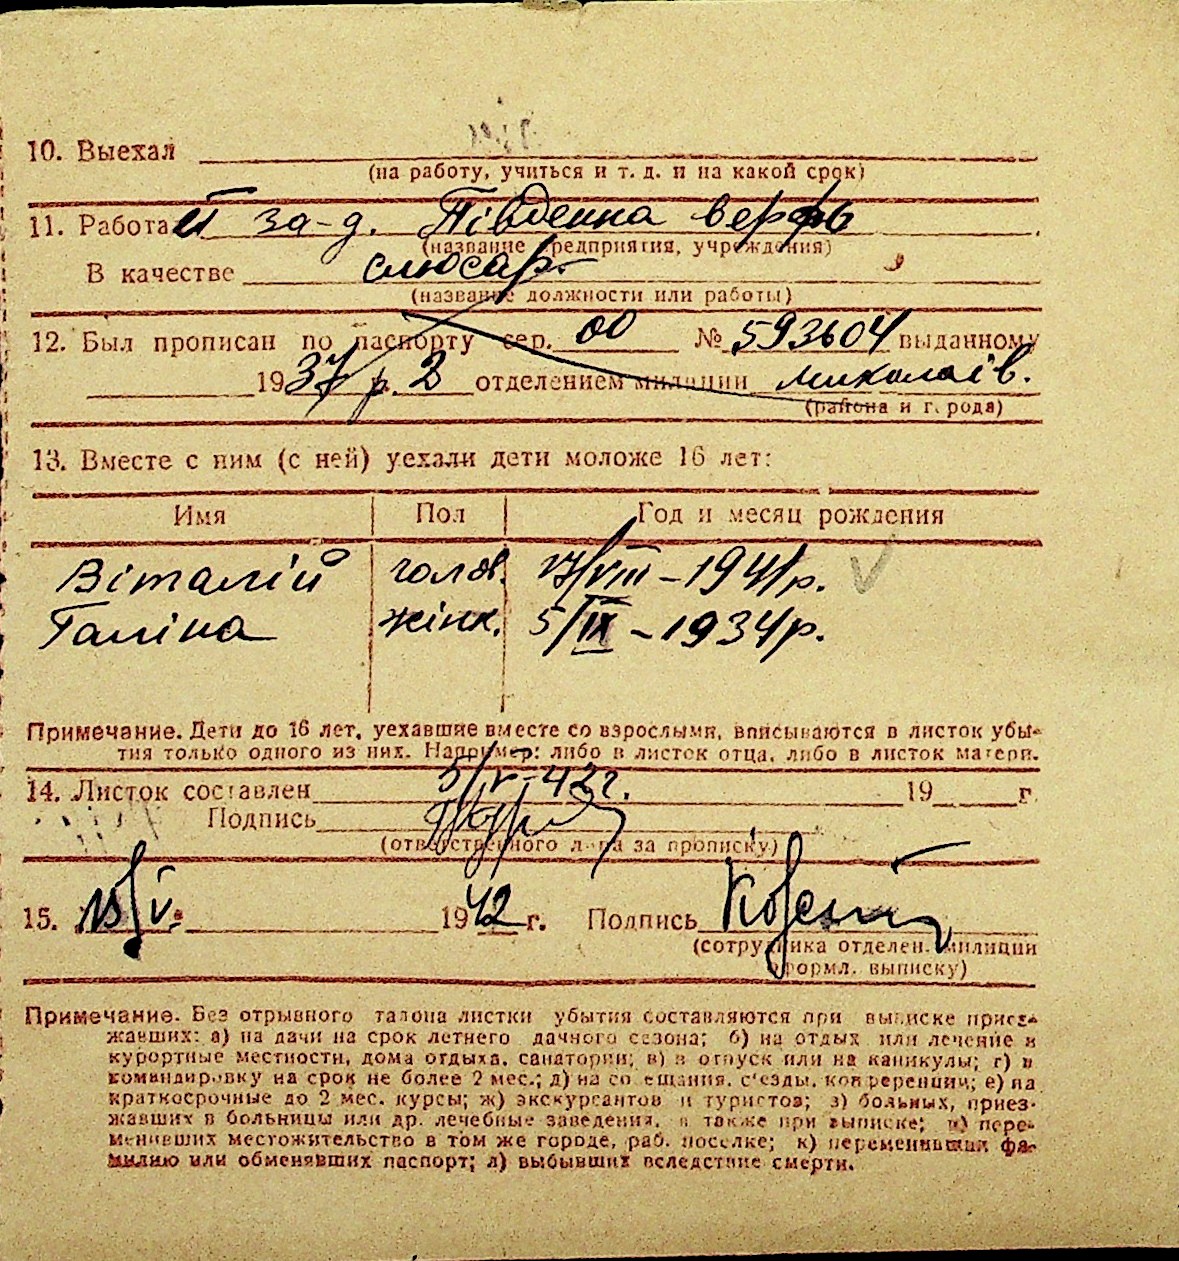 10. Выехал
(на работу, учиться и т. д. и на какой срок)
11. Работал за-д. Південна верфь
(название предприятия, учреждения)
В качестве слюсар.
(название должности или работы)
12. Был прописан по паспорту сер. 00 № 593604 выданному
1937 р. 2 отделением милиции Миколаїв.
(района и города)
13. Вместе с ним (с ней) уехали дети моложе 16 лет:
Имя Пол Год и месяц рождения
Віталій голов. 17/VIII-1941р.
Галіна жінк. 5/IX-1934р.
Примечание. Дети до 16 лет, уехавшие вместе со взрослыми, вписываются в листок убы-
тия только одного из них. Например: либо в листок отца, либо в листок матери.
14. Листок составлен 5/V-42г. 19 г.
Подпись
(ответственного лица за прописку)
15. 13/V. 1942 г. Подпись
(сотрудника отделен. милиции
оформл. выписку)
Примечание. Без отрывного талона листки убытия составляются при выписке приез-
жавших: а) на дачи на срок летнего дачного сезона; б) на отдых или лечение в
курортные местности, дома отдыха, санатории; в) в отпуск или на каникулы; г) в
командировку на срок не более 2 мес.; д) на совещания, с'езды, конференции; е) на
краткосрочные до 2 мес. курсы; ж) экскурсантов и туристов; з) больных, приез-
жавших в больницы или др. лечебные заведения, а также при выписке; и) пере-
менивших местожительство в том же городе, раб. поселке; к) переменивших фа-
милию или обменявших паспорт; л) выбывших вследствие смерти.